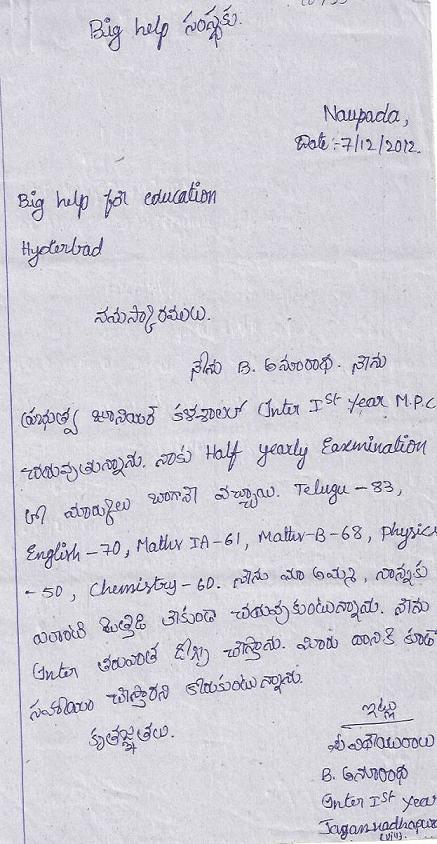 Big help సంస్థకు.
Naupada,
Date :- 7/12/2012.
Big help for education
Hyderbad
నమస్కారములు.
నేను B. అనూరాధ. నేను
ప్రభుత్వ జూనియర్ కళాశాలలో Inter Ist year M.P.C
చదువుతున్నాను. నాకు Half yearly Eaxmination
లో మార్కులు బాగానే వచ్చాయి. Telugu - 83,
English - 70, Maths IA - 61, Maths - B - 68, Physics
- 50, Chemistry - 60. నేను మా అమ్మ, నాన్నకు
ఎలాంటి ఒత్తిడి లేకుండా చదువుకుంటున్నాను. నేను
Inter తరువాత డిగ్రీ చేస్తాను. మీరు దానికి కూడా
సహాయం చేస్తారని కోరుకుంటున్నాను.
కృతజ్ఞతలు.
ఇట్లు
మీ విధేయురాలు
B. అనూరాధ
Inter Ist year
Jagannadhapuram